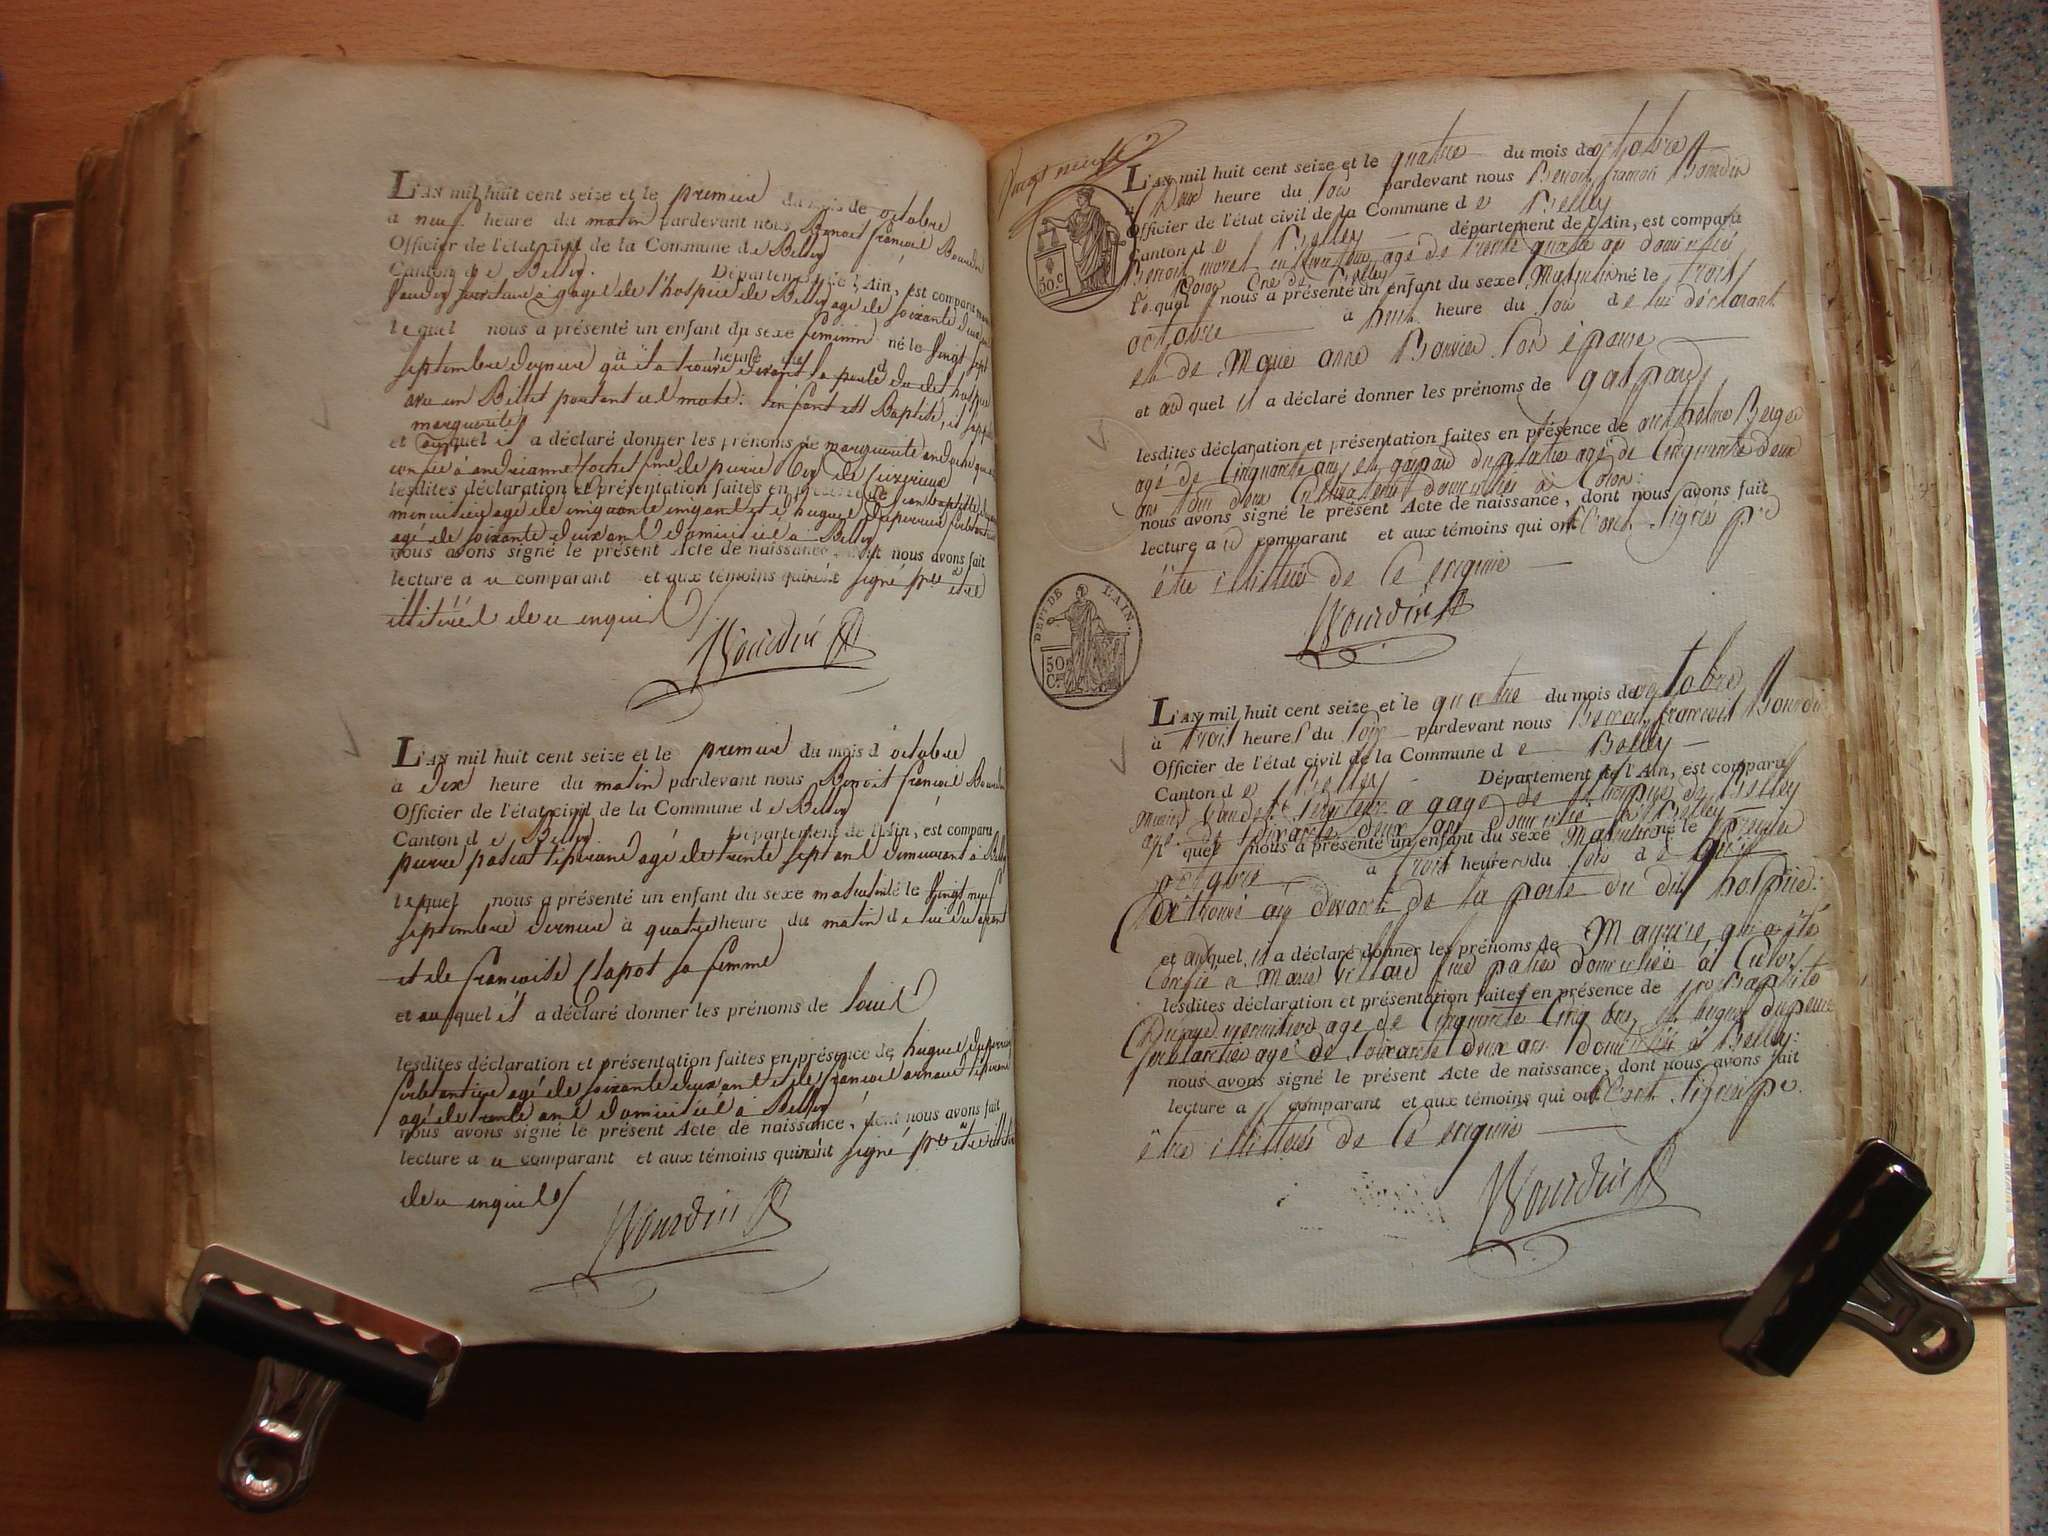 L'AN mil huit cent seize et le premier du mois de octobre
à neuf heure du matin pardevant nous Benoit françois Bourdin
Officier de l'état civil de la Commune de Belley
Canton de Belley. Département de l'Ain, est comparu
serviteur à gage de l'hospice de Belley agé de soixante deux
lequel nous a présenté un enfant du sexe feminin né le vingt sept
septembre dernier qu'il a trouvé devant la porte du dit hospice
à heure
avec un Billet portant ces mots: enfant est Baptisé, il
marguerite
et auquel il a déclaré donner les prénoms de marguerite
confiée à andrianne fochet fme de pierre
lesdites déclaration et présentation faites en présence de jean baptiste
menuisier agé de cinquante cinq ans et d hugues Duperrier
agé de soixante deux ans domicilié à Belley
nous avons signé le présent Acte de naissance, dont nous avons fait
lecture a ce comparant et aux témoins qui ont signé
illitérés de ce enquis
Bourdin
L'AN mil huit cent seize et le premier du mois d octobre
à dix heure du matin pardevant nous Benoit françois Bourdin
Officier de l'état civil de la Commune de Belley
Canton de Belley Département de l'Ain, est comparu
pierre agé de trente sept ans demeurant à Belley
lequel nous a présenté un enfant du sexe masculin né le vingt neuf
septembre dernier à quatre heure du matin de lui déclarant
et de françoise Clapot sa femme
et auquel il a déclaré donner les prénoms de louis
lesdites déclaration et présentation faites en présence de hugues Duperrier
agé de soixante deux ans et de françois arnaud
agé de trente ans domiciliés à Belley
nous avons signé le présent Acte de naissance, dont nous avons fait
lecture a ce comparant et aux témoins qui ont signé
de ce enquis
Bourdin
Vingt neuf
L'AN mil huit cent seize et le quatre du mois de octobre
à Deux heure du soir pardevant nous Benoit françois Bourdin
Officier de l'état civil de la Commune de Belley
Canton de Belley département de l'Ain, est comparu
50 C
Benoit moret cultivateur agé de trente quatre ans domicilié
à Coron Cne de Belley
lequel nous a présenté un enfant du sexe Masculin né le trois
octobre à huit heure du soir de lui déclarant
et de Marie anne Bouvier son épouse
et auquel il a déclaré donner les prénoms de gaspard
lesdites déclaration et présentation faites en présence de anthelme Berger
agé de Cinquante ans et gaspard agé de Cinquante deux
ans tous deux Cultivateurs domiciliés à Coron:
nous avons signé le présent Acte de naissance, dont nous avons fait
lecture au comparant et aux témoins qui ont signés pr
être illitérés de Ce enquis
Bourdin
DEPT DE L'AIN.
50 C.
L'AN mil huit cent seize et le quatre du mois de octobre
à trois heures du soir pardevant nous Benoit françois Bourdin
Officier de l'état civil de la Commune de Belley
Canton de Belley Département de l'Ain, est comparu
Serviteur a gage de l'hospice de Belley
agé de soixante deux ans domicilié à Belley
lequel nous a présenté un enfant du sexe Masculin né le premier
octobre à trois heures du soir de
trouvé au devant de la porte du dit hospice:
et auquel il a déclaré donner les prénoms de Maurice, qui a été
Confié à Marie Villard domiciliée à Culoz
lesdites déclaration et présentation faites en présence de jn Baptiste
menuisier agé de Cinquante Cinq ans et hugues Duperrier
ferblantier agé de soixante deux ans domiciliés à Belley:
nous avons signé le présent Acte de naissance, dont nous avons fait
lecture a comparant et aux témoins qui ont signé pr.
être illitérés de Ce enquis
Bourdin